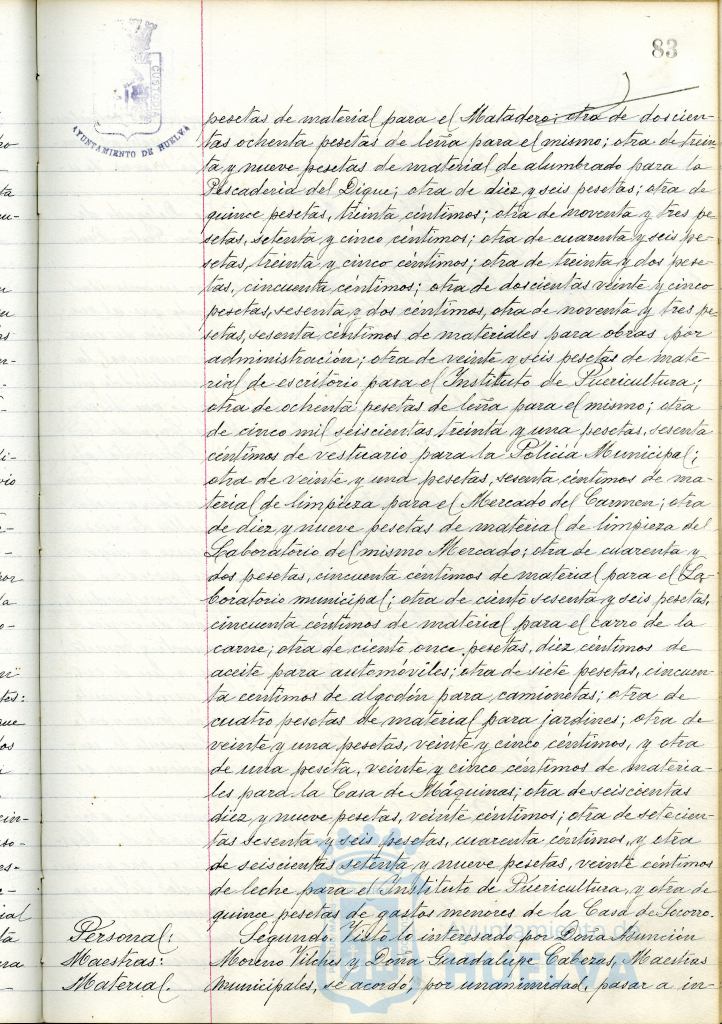 83
CUSTODIA
AYUNTAMIENTO DE HUELVA
pesetas de material para el Matadero; otra de doscien-
tas ochenta pesetas de leña para el mismo; otra de trein
ta y nueve pesetas de material de alumbrado para la
Pescaderia del Dique; otra de diez y seis pesetas; otra de
quince pesetas, treinta céntimos; otra de noventa y tres pe-
setas, setenta y cinco céntimos; otra de cuarenta y seis pe-
setas, treinta y cinco céntimos; otra de treinta y dos pese-
tas, cincuenta céntimos; otra de doscientas veinte y cinco
pesetas, sesenta y dos céntimos, otra de noventa y tres pe-
setas, sesenta céntimos de materiales para obras por
administración; otra de veinte y seis pesetas de mate-
rial de escritorio para el Instituto de Puericultura;
otra de ochenta pesetas de leña para el mismo; otra
de cinco mil seiscientas treinta y una pesetas, sesenta
céntimos de vestuario para la Policia Municipal;
otra de veinte y una pesetas, sesenta céntimos de ma-
terial de limpieza para el Mercado del Carmen; otra
de diez y nueve pesetas de material de limpieza del
Laboratorio del mismo Mercado; otra de cuarenta y
dos pesetas, cincuenta céntimos de material para el La-
boratorio municipal; otra de ciento sesenta y seis pesetas,
cincuenta céntimos de material para el carro de la
carne; otra de ciento once pesetas, diez céntimos de
aceite para automóviles; otra de siete pesetas, cincuen-
ta centimos de algodón para camionetas; otra de
cuatro pesetas de material para jardines; otra de
veinte y una pesetas, veinte y cinco céntimos, y otra
de una peseta, veinte y cinco céntimos de materia-
les para la Casa de Máquinas; otra de seiscientas
diez y nueve pesetas, veinte céntimos; otra de setecien-
tas sesenta y seis pesetas, cuarenta céntimos, y otra
de seiscientas setenta y nueve pesetas, veinte céntimos
de leche para el Instituto de Puericultura, y otra de
quince pesetas de gastos menores de la Casa de Socorro.
Personal: Segundo. Visto lo interesado por Doña Asunción
Maestras: Moreno Vilches y Doña Guadalupe Cabezas, Maestras
Material. municipales, se acordó, por unanimidad, pasar a in-
Ayuntamiento de
HUELVA